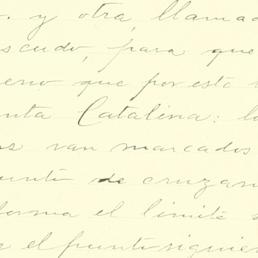 y otra, llamad
scudo, para que
eno que por este
nta Catalina: l
s van marcados
punto de cruzam
forma el limite
el punto siguien